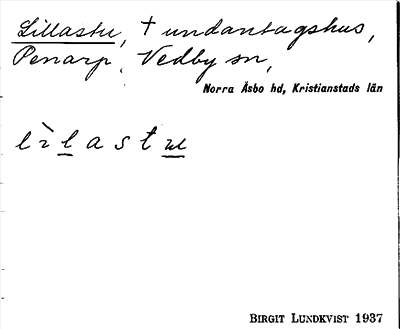 Lillastu, † undantagshus,
Penarp, Vedby sn,
Norra Åsbo hd, Kristianstads län
lìlastu
BIRGIT LUNDKVIST 1937